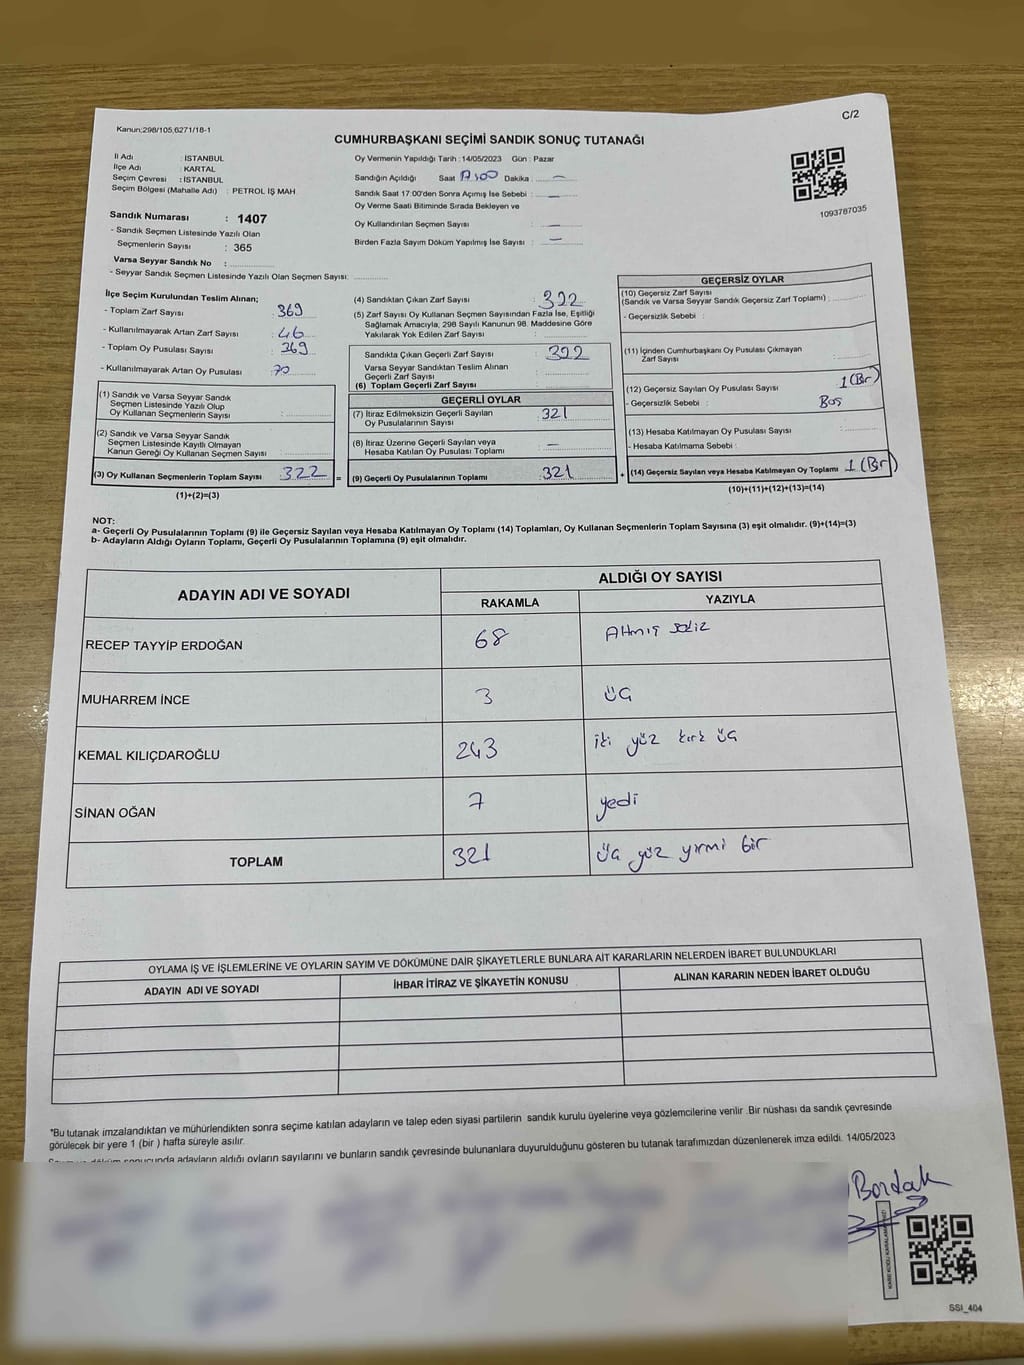 Kanun;298/105,6271/18-1
C/2
CUMHURBAŞKANI SEÇİMİ SANDIK SONUÇ TUTANAĞI
İl Adı : İSTANBUL
İlçe Adı : KARTAL
Seçim Çevresi : İSTANBUL
Seçim Bölgesi (Mahalle Adı) : PETROL İŞ MAH
Oy Vermenin Yapıldığı Tarih : 14/05/2023 Gün : Pazar
Sandığın Açıldığı Saat Dakika : —
Sandık Saat 17:00'den Sonra Açımış İse Sebebi : —
Oy Verme Saati Bitiminde Sırada Bekleyen ve
Oy Kullandırılan Seçmen Sayısı : —
Birden Fazla Sayım Döküm Yapılmış İse Sayısı : —
1093787035
Sandık Numarası : 1407
- Sandık Seçmen Listesinde Yazılı Olan
Seçmenlerin Sayısı : 365
Varsa Seyyar Sandık No :
- Seyyar Sandık Seçmen Listesinde Yazılı Olan Seçmen Sayısı:
İlçe Seçim Kurulundan Teslim Alınan;
- Toplam Zarf Sayısı : 369
- Kullanılmayarak Artan Zarf Sayısı : 46
- Toplam Oy Pusulası Sayısı : 369
- Kullanılmayarak Artan Oy Pusulası : 70
(1) Sandık ve Varsa Seyyar Sandık
Seçmen Listesinde Yazılı Olup
Oy Kullanan Seçmenlerin Sayısı :
(2) Sandık ve Varsa Seyyar Sandık
Seçmen Listesinde Kayıtlı Olmayan
Kanun Gereği Oy Kullanan Seçmen Sayısı :
(3) Oy Kullanan Seçmenlerin Toplam Sayısı : 322 =
(1)+(2)=(3)
(4) Sandıktan Çıkan Zarf Sayısı : 322
(5) Zarf Sayısı Oy Kullanan Seçmen Sayısından Fazla İse, Eşitliği
Sağlamak Amacıyla, 298 Sayılı Kanunun 98. Maddesine Göre
Yakılarak Yok Edilen Zarf Sayısı :
Sandıkta Çıkan Geçerli Zarf Sayısı : 322
Varsa Seyyar Sandıktan Teslim Alınan
Geçerli Zarf Sayısı :
(6) Toplam Geçerli Zarf Sayısı :
GEÇERLİ OYLAR
(7) İtiraz Edilmeksizin Geçerli Sayılan
Oy Pusulalarının Sayısı : 321
(8) İtiraz Üzerine Geçerli Sayılan veya
Hesaba Katılan Oy Pusulası Toplamı : —
(9) Geçerli Oy Pusulalarının Toplamı : 321 +
GEÇERSİZ OYLAR
(10) Geçersiz Zarf Sayısı
(Sandık ve Varsa Seyyar Sandık Geçersiz Zarf Toplamı) :
- Geçersizlik Sebebi :
(11) İçinden Cumhurbaşkanı Oy Pusulası Çıkmayan
Zarf Sayısı :
(12) Geçersiz Sayılan Oy Pusulası Sayısı : 1 (Bir)
- Geçersizlik Sebebi : Boş
(13) Hesaba Katılmayan Oy Pusulası Sayısı :
- Hesaba Katılmama Sebebi :
(14) Geçersiz Sayılan veya Hesaba Katılmayan Oy Toplamı 1 (Bir)
(10)+(11)+(12)+(13)=(14)
NOT:
a- Geçerli Oy Pusulalarının Toplamı (9) ile Geçersiz Sayılan veya Hesaba Katılmayan Oy Toplamı (14) Toplamları, Oy Kullanan Seçmenlerin Toplam Sayısına (3) eşit olmalıdır. (9)+(14)=(3)
b- Adayların Aldığı Oyların Toplamı, Geçerli Oy Pusulalarının Toplamına (9) eşit olmalıdır.
ADAYIN ADI VE SOYADI ALDIĞI OY SAYISI
RAKAMLA YAZIYLA
RECEP TAYYİP ERDOĞAN 68 Altmış sekiz
MUHARREM İNCE 3 üç
KEMAL KILIÇDAROĞLU 243 iki yüz kırk üç
SİNAN OĞAN 7 yedi
TOPLAM 321 üç yüz yirmi bir
OYLAMA İŞ VE İŞLEMLERİNE VE OYLARIN SAYIM VE DÖKÜMÜNE DAİR ŞİKAYETLERLE BUNLARA AİT KARARLARIN NELERDEN İBARET BULUNDUKLARI
ADAYIN ADI VE SOYADI İHBAR İTİRAZ VE ŞİKAYETİN KONUSU ALINAN KARARIN NEDEN İBARET OLDUĞU
*Bu tutanak imzalandıktan ve mühürlendikten sonra seçime katılan adayların ve talep eden siyasi partilerin sandık kurulu üyelerine veya gözlemcilerine verilir .Bir nüshası da sandık çevresinde
görülecek bir yere 1 (bir ) hafta süreyle asılır.
sonucunda adayların aldığı oyların sayılarını ve bunların sandık çevresinde bulunanlara duyurulduğunu gösteren bu tutanak tarafımızdan düzenlenerek imza edildi. 14/05/2023
Bordak
SSI_404